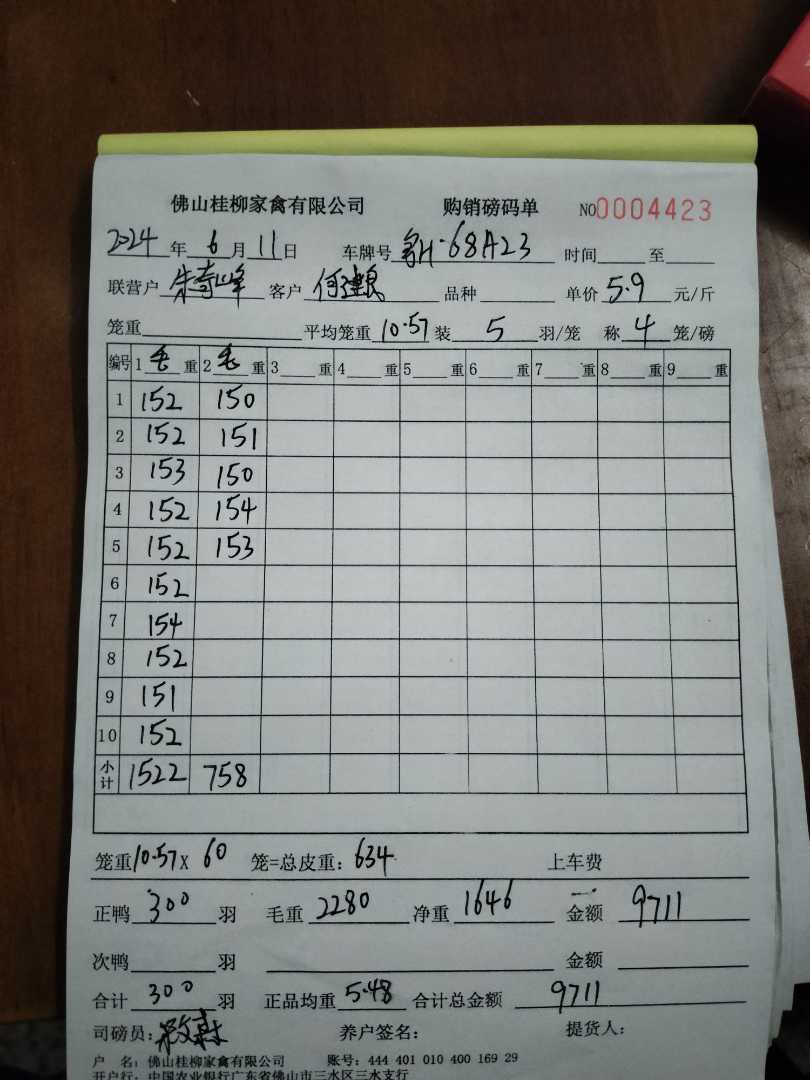 佛山桂柳家禽有限公司 购销磅码单 NO0004423
2024年6月11日 车牌号 H·68A23 时间 至
联营户 朱奇峰 客户 何建良 品种 单价 5.9 元/斤
笼重 平均笼重 10.57 装 5 羽/笼 称 4 笼/磅
编号 1 毛 重 2 毛 重 3 重 4 重 5 重 6 重 7 重 8 重 9 重
1 152 150
2 152 151
3 153 150
4 152 154
5 152 153
6 152
7 154
8 152
9 151
10 152
小计 1522 758
笼重 10.57 X 60 笼=总皮重: 634 上车费
正鸭 300 羽 毛重 2280 净重 1646 金额 9711
次鸭 羽 金额
合计 300 羽 正品均重 5.48 合计总金额 9711
司磅员: 养户签名: 提货人:
户 名: 佛山桂柳家禽有限公司 账号: 444 401 010 400 169 29
开户行: 中国农业银行广东省佛山市三水区三水支行